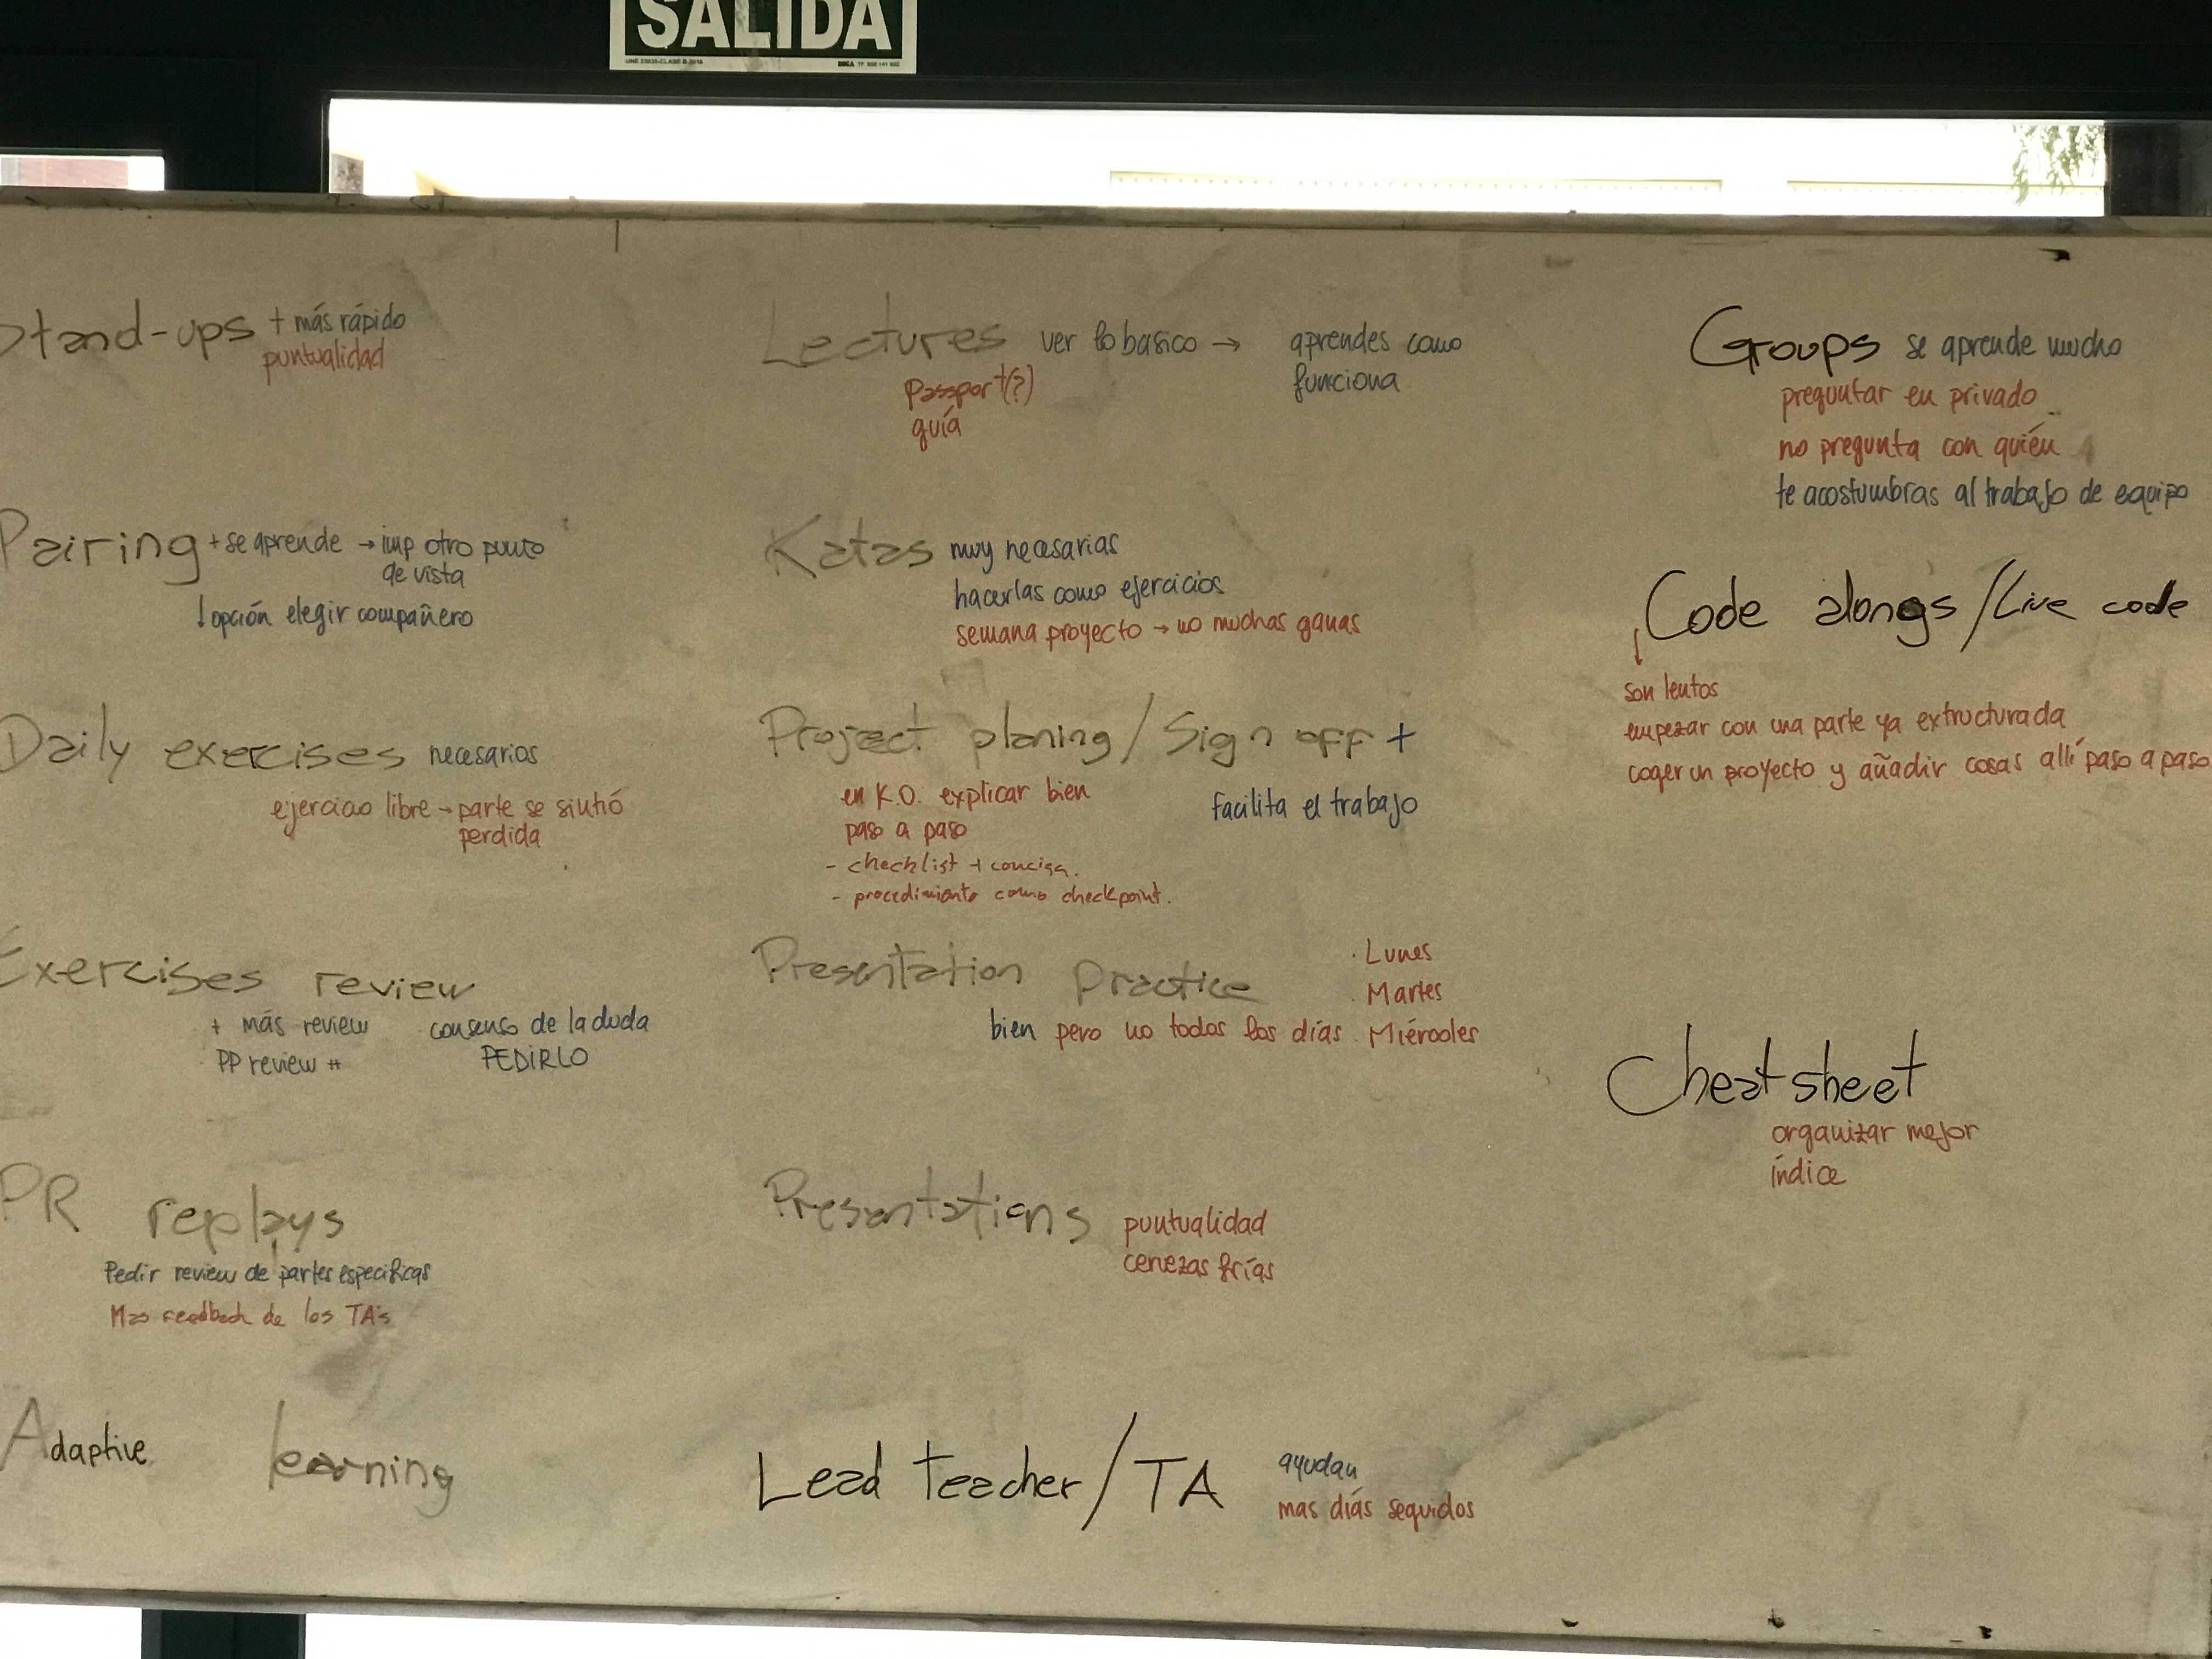 SALIDA
Stand-ups + más rápido
puntualidad
Pairing + se aprende → imp otro punto
de vista
↓ opción elegir compañero
Daily exercises necesarios
ejercicio libre → parte se sintió
perdida
Exercises review
+ más review
PP review ++
consenso de la duda
PEDIRLO
PR replays
Pedir review de partes especificas
Mas feedback de los TA's
Adaptive learning
Lectures ver lo basico → aprendes como
funciona
Passport(?)
guía
Katas muy necesarias
hacerlas como ejercicios
semana proyecto → no muchas ganas
Project planing / Sign off +
en K.O. explicar bien
paso a paso
- checklist + concisa.
- procedimiento como checkpoint.
facilita el trabajo
Presentation practice
bien pero no todos los días
· Lunes
· Martes
· Miércoles
Presentations puntualidad
cervezas frías
Lead teacher / TA ayudan
mas diás seguidos
Groups se aprende mucho
preguntar en privado
no pregunta con quién
te acostumbras al trabajo de equipo
Code alongs / Live code
↓
son lentos
empezar con una parte ya extructurada
coger un proyecto y añadir cosas allí paso a paso
Cheat sheet
organizar mejor
índice